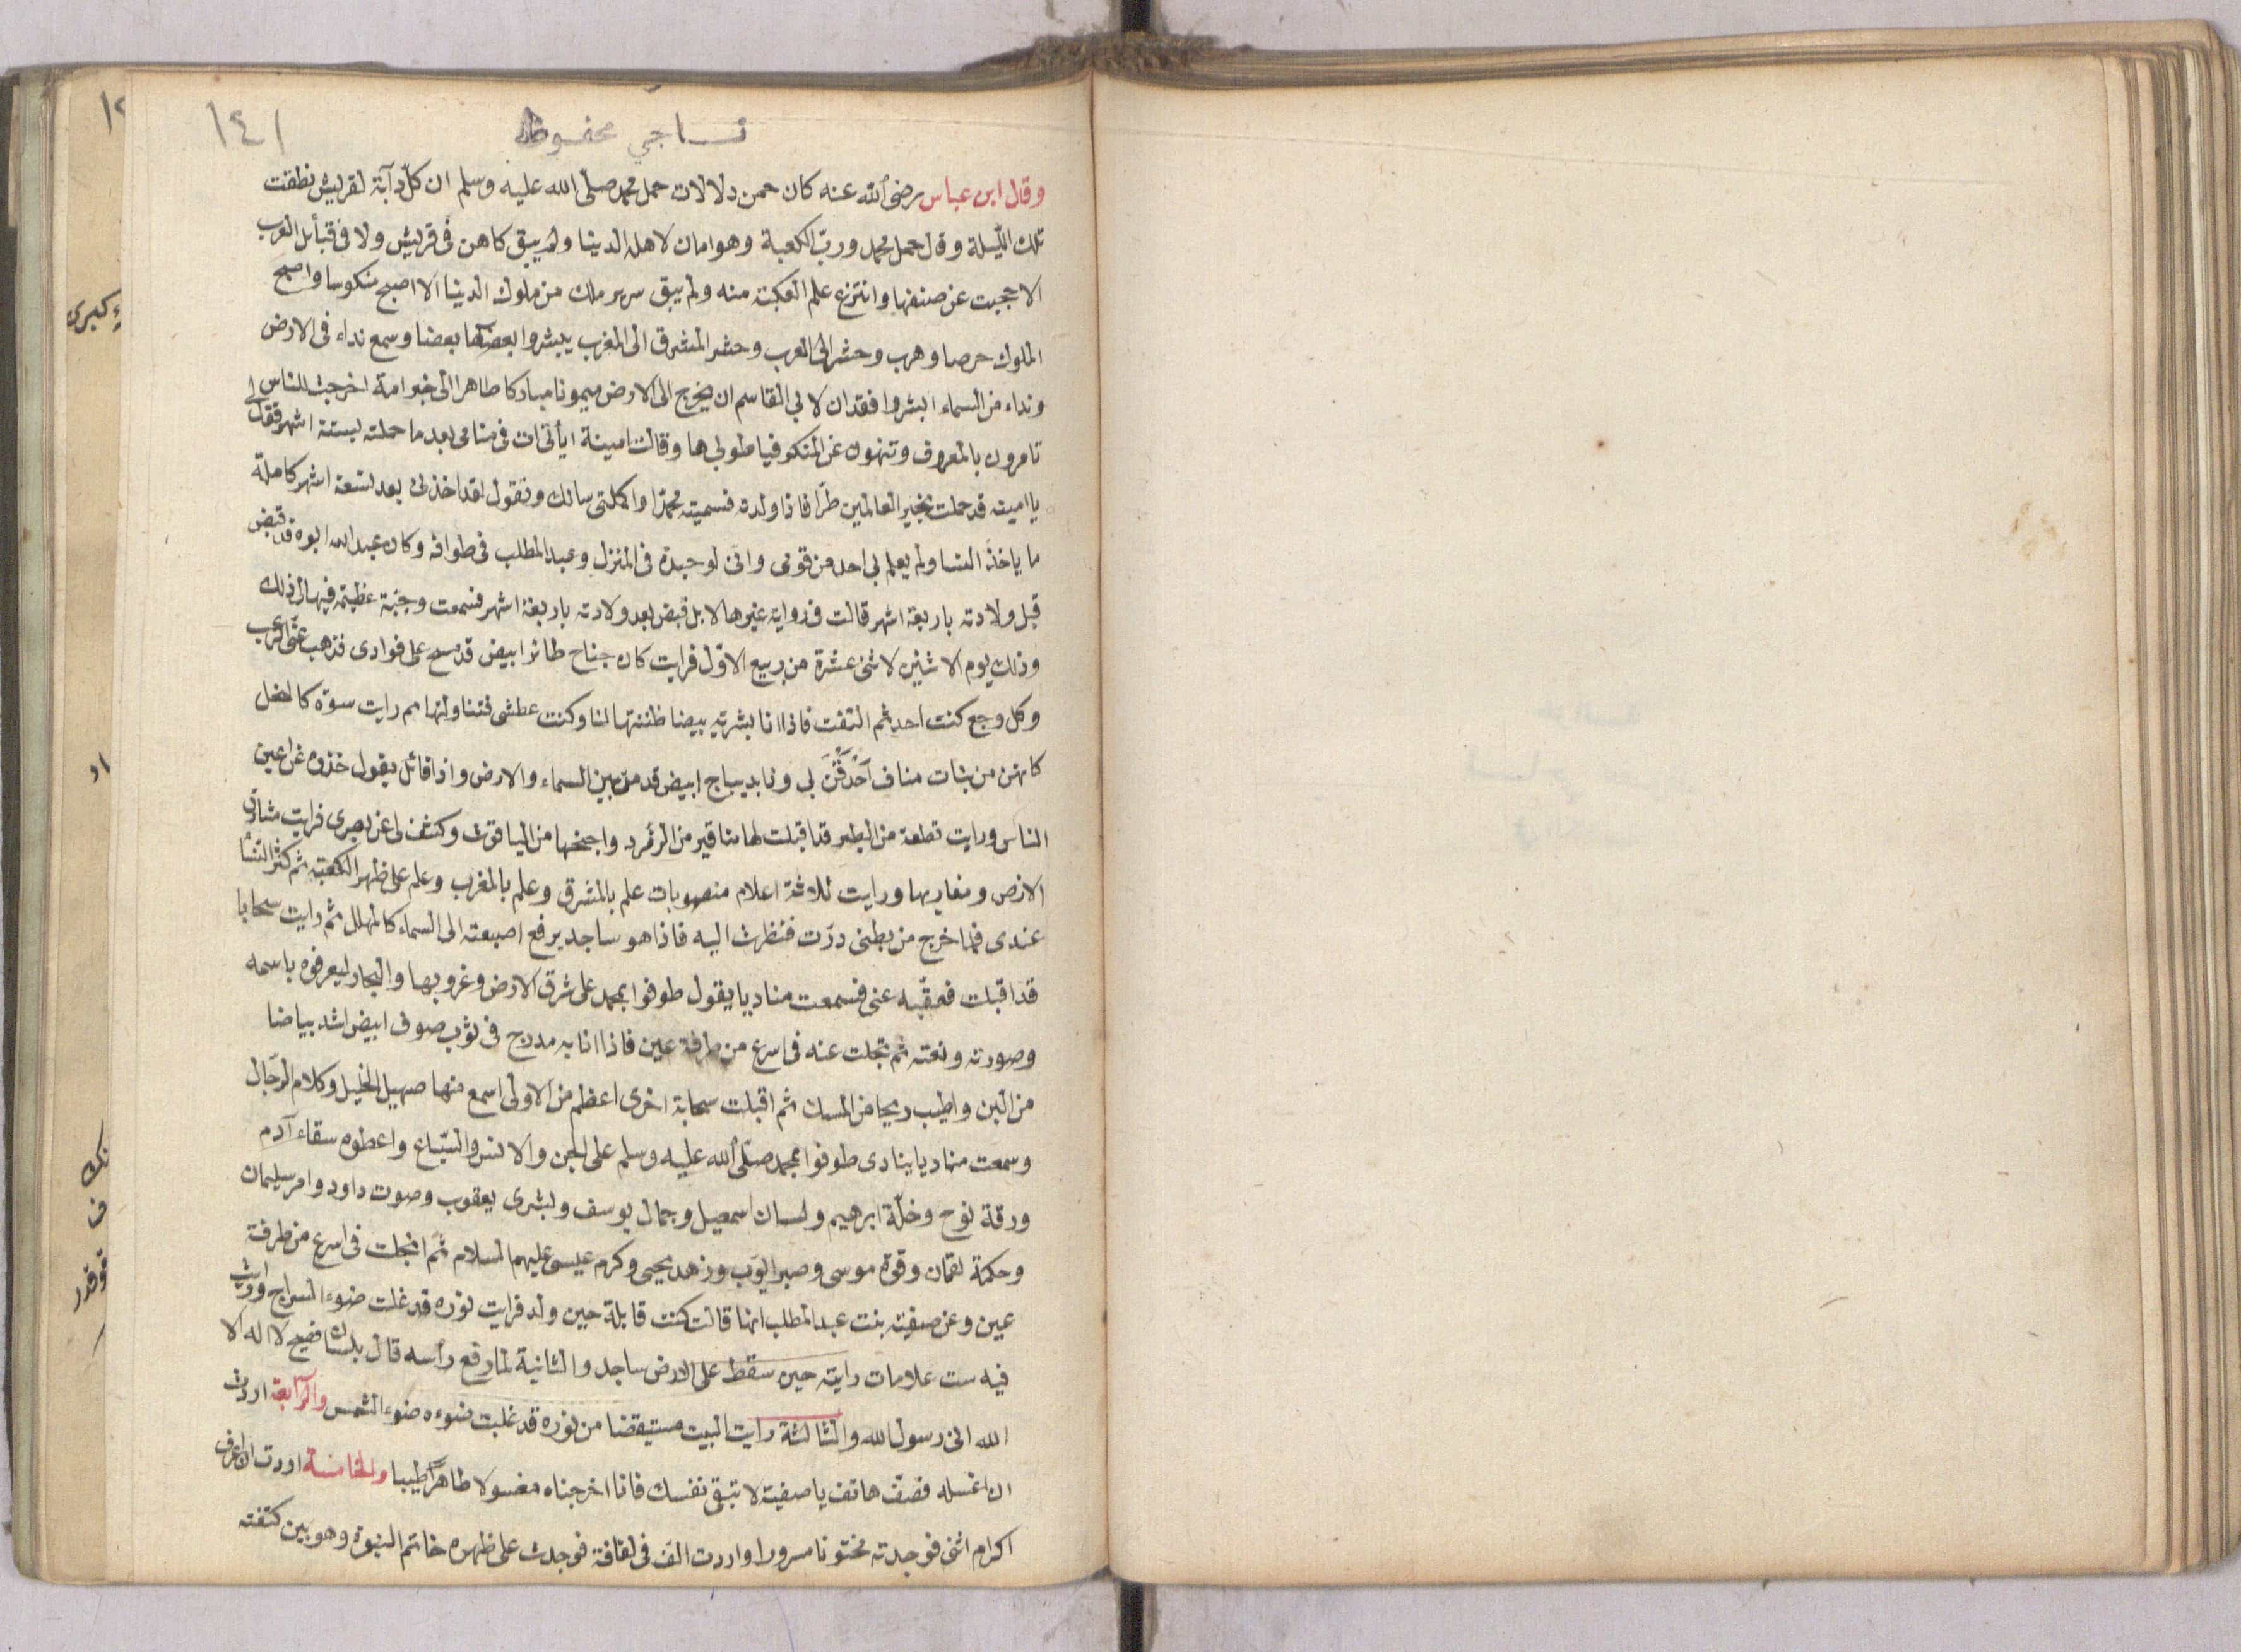 نساجي محفوظ
١٤١
وقال ابن عباس رضى الله عنه كان حمن دلالات حمل محمد صلى الله عليه وسلم ان كل دآبة لقريش نطقت
تلك الليلة وقال حمل محمد ورب الكعبة وهو امان لاهل الدينا ولم يبق كاهن فى قريش ولا فى قبأئل العرب
الا حجبت عن صنفها وانتزع علم منه ولم يبق سرير ملك من ملوك الدينا الا اصبح منكوسا واصبح
الملوك حرصا وهرب وحشر الى العرب وحشر المشرق الى المغرب يبشروا بعضها بعضا وسمع نداء فى الارض
ونداء من السماء ابشروا فقد ان لابى القاسم ان يخرج الى الارض ميمونا مباركا طاهرا الى خير امة اخرجت للناس
تامرون بالمعروف وتنهون عن المنكر فيا طوبى ها وقالت امينة ايأتى ات فى منامى بعد ما حملته بستة اشهر فقال لى
يا امينة قد حملت بخير العالمين طرّا فاذا ولدته فسميته محمدا واكلتى سانك وتقول لقد اخذنى بعد تسعة اشهر كاملة
ما ياخذ النسا ولم يعلم بى احد من قومى وانى لوحيدة فى المنزل وعبد المطلب فى طوافه وكان عبد الله ابوه قد قبض
قبل ولادته باربعة اشهر قالت فى رواية غيرها لا بل قبض بعد ولادته باربعة اشهر فسمعت وجبة عظيمة فهالنى ذلك
وذلك يوم الاثنين لاثنى عشرة من ربيع الاول فرايت كان جناح طائر ابيض قد مسح على فوادى فذهب عنى الرعب
وكل وجع كنت احد ثم التفت فاذا انا بشربة بيضا ظننتها لبنا وكنت عطشى فتناولتها مم رايت سوة كالنخل
كانهن من بنات مناف احدقن بى ونا بديباج ابيض قد مد بين السماء والارض واذا قائل يقول خذوه عن اعين
الناس ورايت قطعة من الطير قد اقبلت لها مناقير من الزمرد واجنحها من الياقوت وكشف لى عن بصرى فرايت مشارق
الارض ومغاربها ورايت ثلاثة اعلام منصوبات علم بالمشرق وعلم بالمغرب وعلم على ظهر الكعبة ثم كثر النسا
عندى فلما خرج من بطنى درت فنظرت اليه فاذا هو ساجد يرفع اصبعته الى السماء كالمهلل ثم رايت سحابا
قد اقبلت فعقبه عنى فسمعت مناديا يقول طوفوا بمحمد على شرق الارض وغروبها والبحار ليعرفوه باسمه
وصورته ونعته ثم تجلت عنه فى اسرع من طرفة عين فاذا انا به مدرج فى ثوب صوف ابيض اشد بياضا
من البن واطيب ريحا من المسك ثم اقبلت سحابة اخرى اعظم من الاولى اسمع منها صهيل الخيل وكلام الرجال
وسمعت مناديا ينادى طوفوا بمحمد صلى الله عليه وسلم على الجن والانس والسباع واعطوه سقاء آدم
ورقة نوح وخلّة ابرهيم ولسان اسمعيل وجمال يوسف وبشرى يعقوب وصوت داود وامر سليمان
وحكمة لقمان وقوة موسى وصبر ايوب وزهد يحيى وكرم عيسى عليهم السلام ثم انجلت فى اسرع من طرفة
عين وعن صفية بنت عبد المطلب انها قالت كنت قابلة حين ولد فرايت نوره قد غلت ضوء السراج ورايت
فيه ست علامات رايته حين سقط على الارض ساجد والثانية لما رفع رأسه قال بلسان فصيح لا اله الا
الله انى رسول الله والثالثة رايت البيت مستيقضا من نوره قد غلبت ضوءه ضوء الشمس والرابعة اردت
ان اغسله فصف هاتف يا صفية لا تبقى نفسك فانا اخرجناه مغسولا طاهرًا طيبا والخامسة اردت ان اعرف
اكرام انثى فوجدته مختونا مسرورا واردت الف فى لفافة فوجدت على ظهره خاتم النبوة وهو بين كتفته